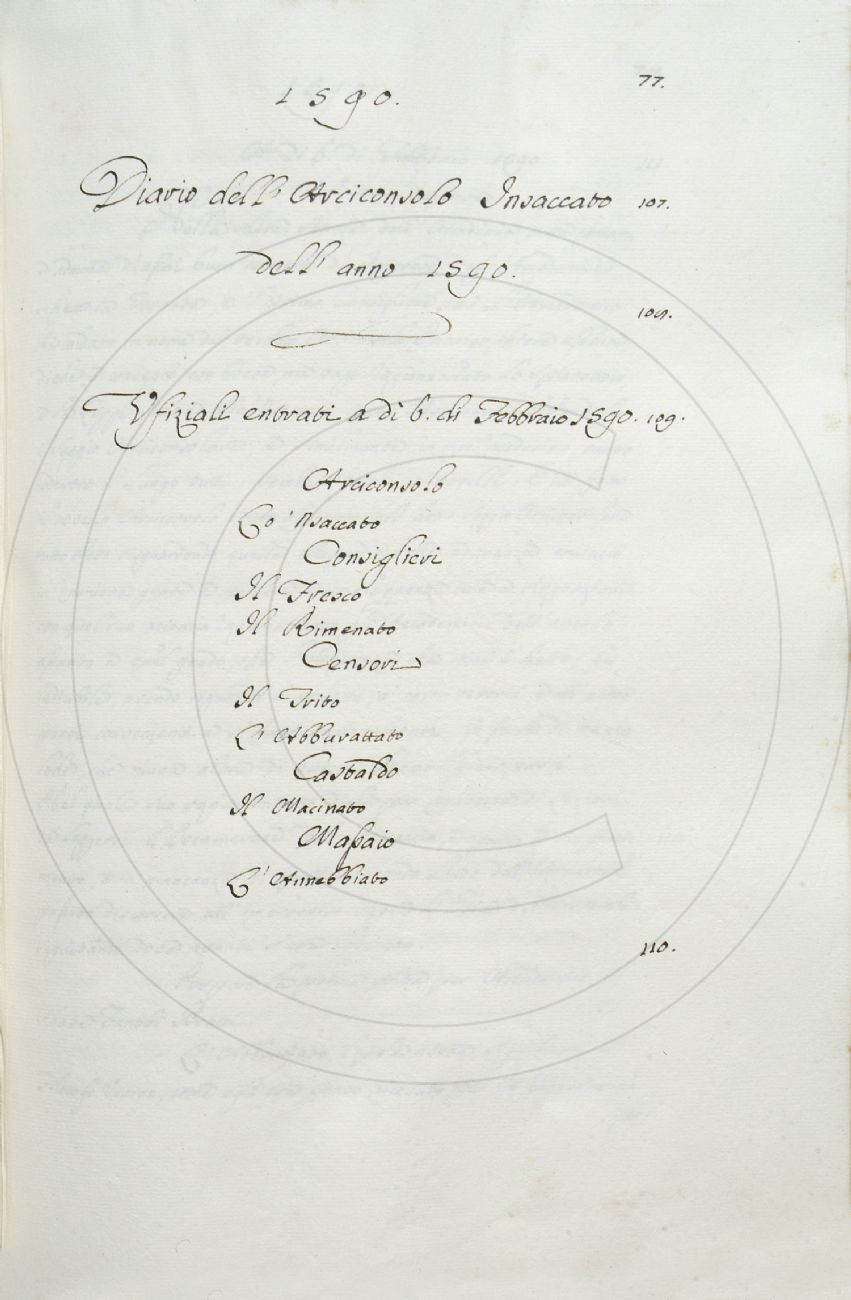 77.
1590.
Diario dell' Arciconsolo Insaccato 107.
dell' anno 1590.
108.
Ufiziali entrati a dì 6. di Febbraio 1590. 109.
Arciconsolo
Lo 'nsaccato
Consiglieri
Il Fresco
Il Rimenato
Censori
Il Trito
L' Abburattato
Castaldo
Il Macinato
Massaio
L' Annebbiato
110.